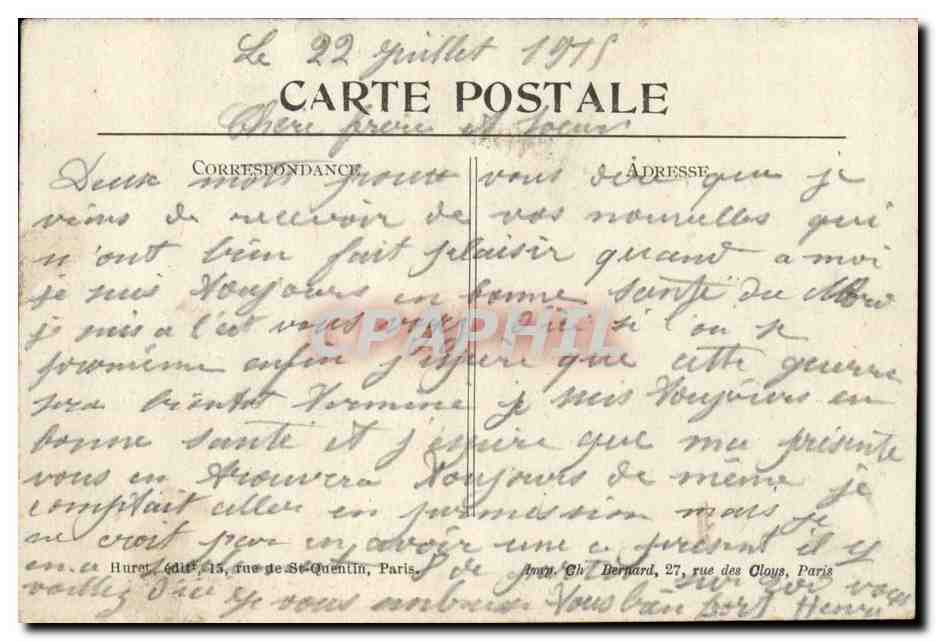 Le 22 Juillet 1915
CARTE POSTALE
Chere frere et soeur
CORRESPONDANCE ADRESSE
Deux mots pour vous dire que je
viens de recevoir de vos nouvelles qui
m'ont bien fait plaisir quand a moi
je suis toujours en bonne santé du
je suis a l'est vous que si l'on se
promème enfin j'espere que cette guerre
sera bientot termine je suis toujours en
bonne santé et j'espere que ma présente
vous en trouvera toujours de même je
comptait aller en permission mais je
ne croit pas en avoir une a present il y
en a de
Huret, édit', 15, rue de St-Quentin, Paris. Imp. Ch Bernard, 27, rue des Cloys, Paris
je vous embrasse tous bien fort Henri
CPAPHIL